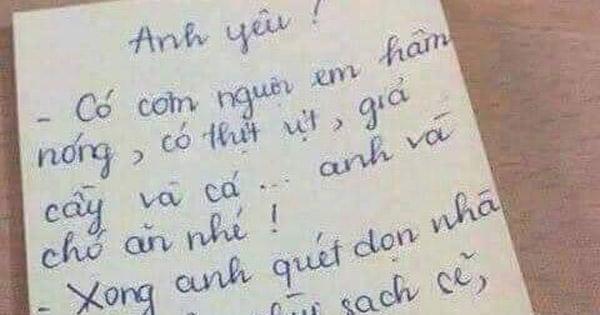 Anh yêu !
- Có cơm nguội em hâm
nóng, có thịt vịt, giả
cầy và cá ... anh và
chó ăn nhé !
- Xong anh quét dọn nhà
sạch sẽ,